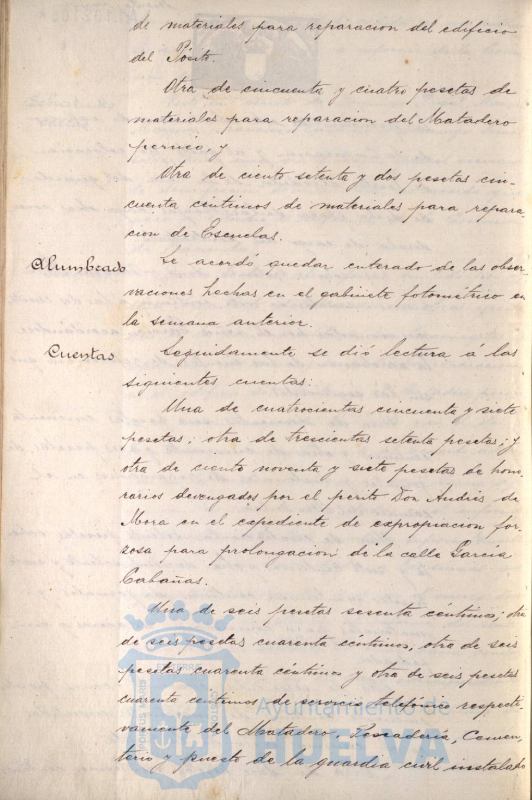 de materiales para reparacion del edificio
del Pósito.
Otra de cincuenta y cuatro pesetas de
materiales para reparacion del Matadero
perneo, y
Otra de ciento setenta y dos pesetas cin-
cuenta céntimos de materiales para repara-
cion de Escuelas.
Alumbrado
Se acordó quedar enterado de las obser
vaciones hechas en el gabinete fotométrico en
la semana anterior.
Cuentas
Seguidamente se dió lectura á las
siguientes cuentas:
Una de cuatrocientas cincuenta y siete
pesetas; otra de trescientas setenta pesetas; y
otra de ciento noventa y siete pesetas de hono-
rarios devengados por el perito Don Andrés de
Mora en el expediente de expropiacion for-
zosa para prolongacion de la calle Garcia
Cabañas.
Una de seis pesetas sesenta céntimos; otra
de seis pesetas cuarenta céntimos, otra de seis
pesetas cuarenta céntimos y otra de seis pesetas
cuarenta centimos de servicio telefónico respecti-
vamente del Matadero, Pescadería, Cemen-
terio y puesto de la guardia civil instalado
Ayuntamiento de
HUELVA